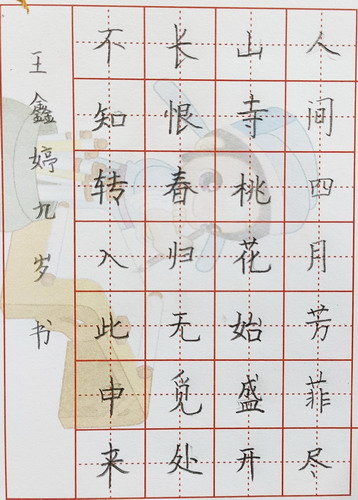 人间四月芳菲尽
山寺桃花始盛开
长恨春归无觅处
不知转入此中来
王鑫婷九岁书